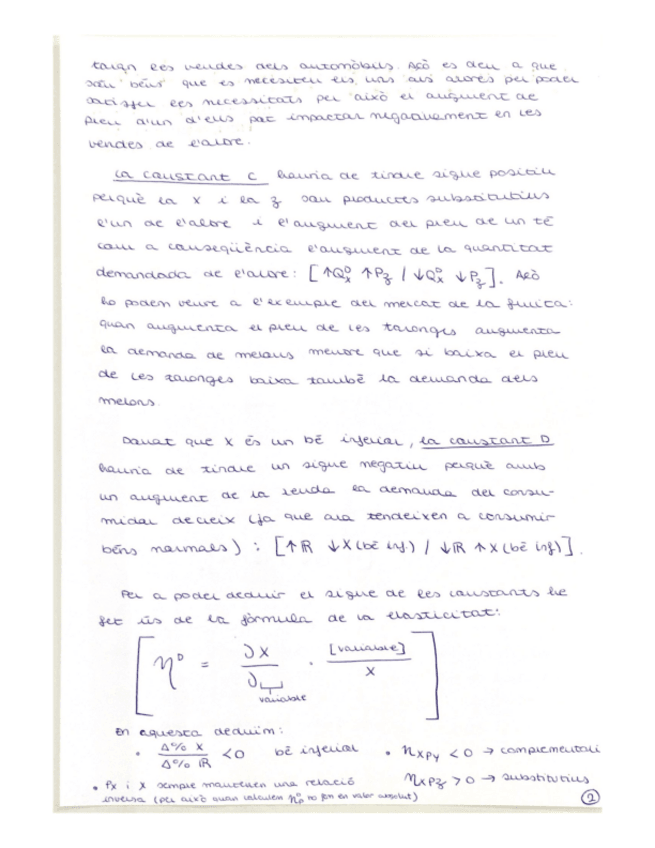 taran les vendes dels automòbils. Açò es deu a que
són béns que es necessiten els uns als altres per poder
satisfer les necessitats per això el augment de
preu d'un d'ells pot impactar negativament en les
vendes de l'altre.
La constant C hauria de tindre signe positiu
perquè la X i la z són productes substitutius
l'un de l'altre i l'augment del preu de un té
com a conseqüència l'augment de la quantitat
demandada de l'altre: [↑Qxᴰ ↑Pz / ↓Qxᴰ ↓Pz]. Açò
ho podem veure a l'exemple del mercat de la fruita:
quan augmenta el preu de les taronges augmenta
la demanda de melons mentre que si baixa el preu
de les taronges baixa també la demanda dels
melons.
Donat que X és un bé inferior, la constant D
hauria de tindre un signe negatiu perquè amb
un augment de la renda la demanda del consu-
midor decreix (ja que ara tendeixen a consumir
béns normals) : [↑R ↓X (bé inf.) / ↓R ↑X (bé inf)].
Per a poder deduir el signe de les constants he
fet ús de la fórmula de la elasticitat:
[ηᴰ = ∂X / ∂ variable · [variable] / X]
En aquesta deduïm:
• Δ% X / Δ% R < 0 bé inferior • ηxpy < 0 → complementari
ηxpz > 0 → substitutius
• Px i X sempre mantenen una relació
inversa (per això quan calculem ηpᴰ ho fem en valor absolut)
2